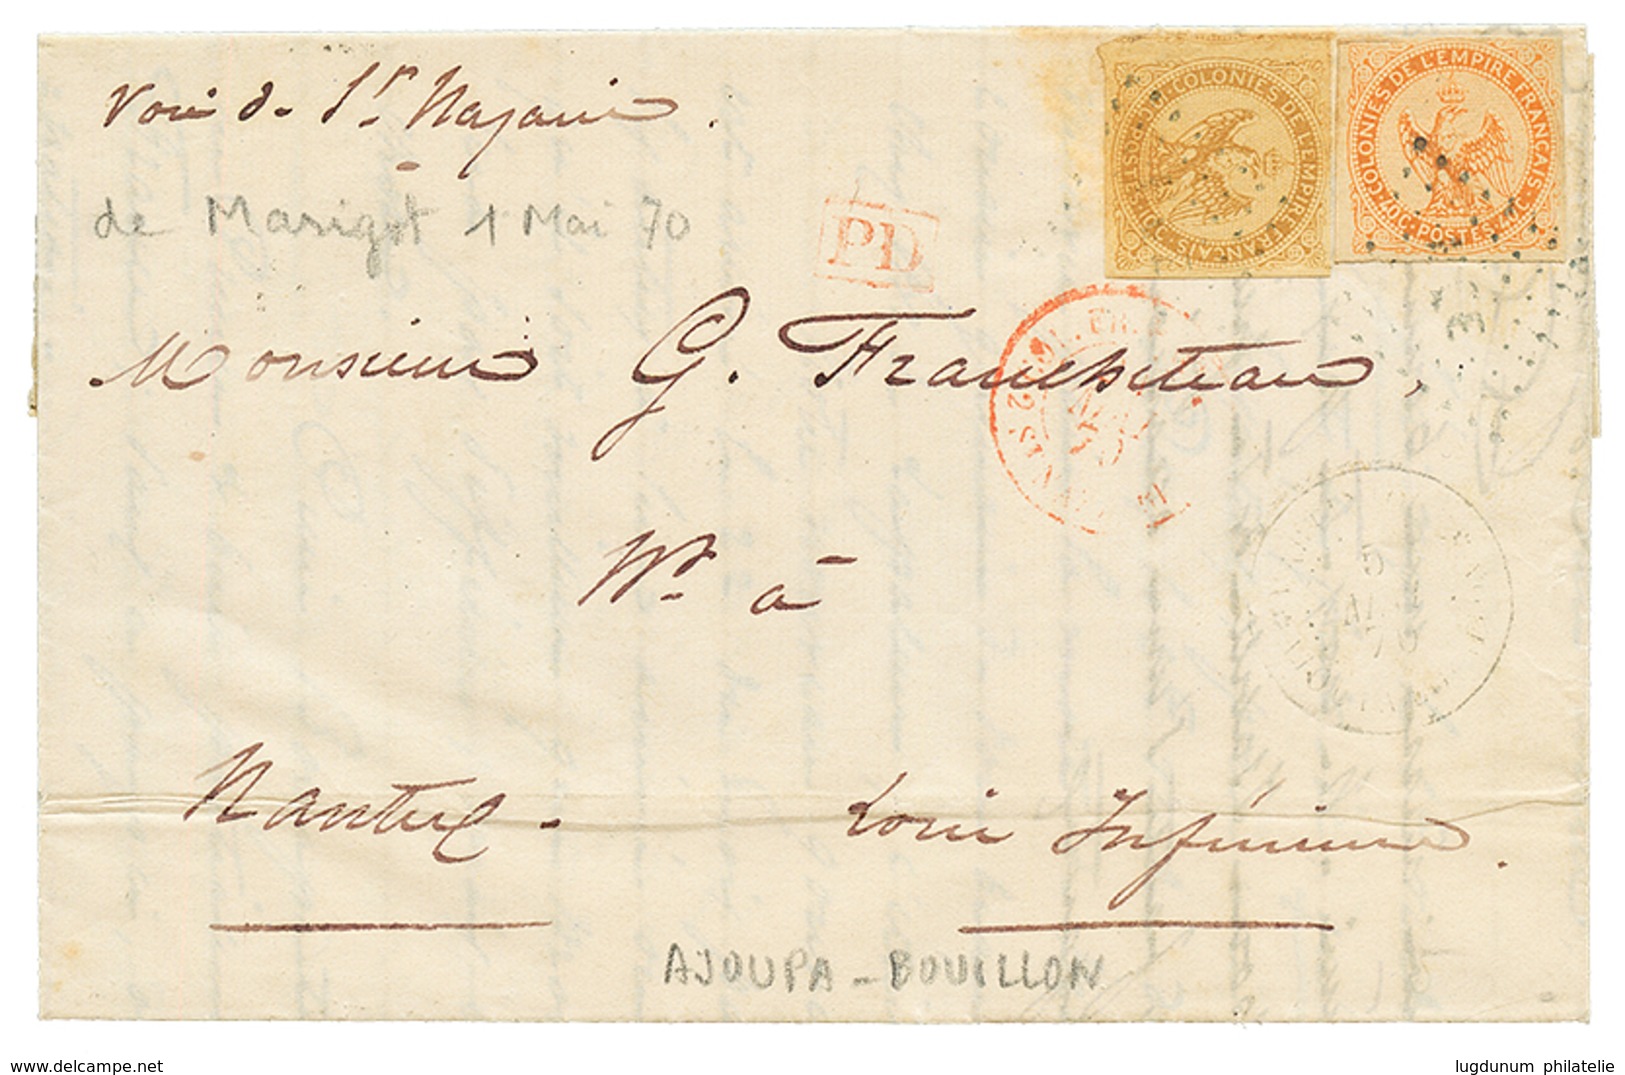 Voie de St. Nazaire.
de Marigot 1 Mai 70
PD
COLONIES DE L'EMPIRE FRANÇAIS · 10C · POSTES · 10C
COLONIES DE L'EMPIRE FRANÇAIS · 40C · POSTES · 40C
COL. FR.
Monsieur G. Francheteau,
5
70
Nt. à
Nantes. Loire Inférieure.
AJOUPA-BOUILLON
www.delcampe.net
lugdunum philatelie